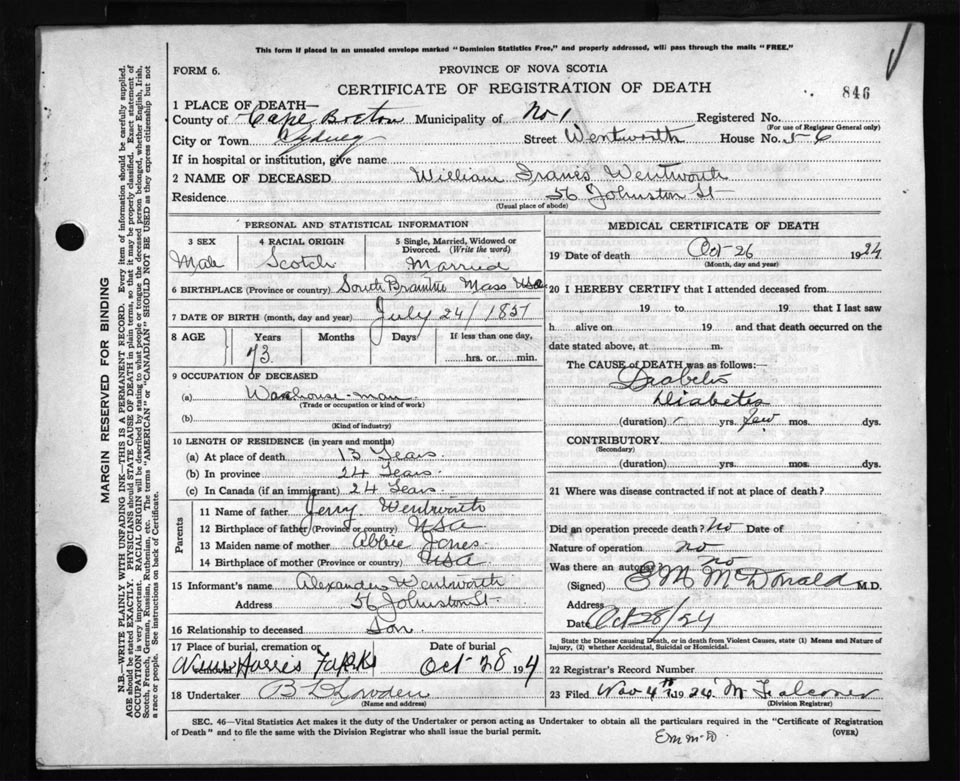 This form if placed in an unsealed envelope marked "Dominion Statistics Free," and properly addressed, will pass through the mails "FREE."
FORM 6.
PROVINCE OF NOVA SCOTIA
CERTIFICATE OF REGISTRATION OF DEATH
846
1 PLACE OF DEATH—
County of Cape Breton Municipality of No 1 Registered No.
(For use of Registrar General only)
City or Town Sydney Street Wentworth House No. 56
If in hospital or institution, give name
2 NAME OF DECEASED William Franis Wentworth
Residence 56 Johnston St
(Usual place of abode)
PERSONAL AND STATISTICAL INFORMATION
3 SEX 4 RACIAL ORIGIN 5 Single, Married, Widowed or Divorced. (Write the word)
Male Scotch Married
6 BIRTHPLACE (Province or country) South Braintree Mass USA
7 DATE OF BIRTH (month, day and year) July 24/1851
8 AGE Years Months Days If less than one day,
73 hrs. or min.
9 OCCUPATION OF DECEASED
(a) Warehouse-man
(Trade or occupation or kind of work)
(b)
(Kind of industry)
10 LENGTH OF RESIDENCE (in years and months)
(a) At place of death 13 Years
(b) In province 24 Years
(c) In Canada (if an immigrant) 24 Years
Parents
11 Name of father Jerry Wentworth
12 Birthplace of father (Province or country) USA
13 Maiden name of mother Abbie Jones
14 Birthplace of mother (Province or country) USA
15 Informant's name Alexander Wentworth
Address 56 Johnston St
16 Relationship to deceased Son
17 Place of burial, cremation or removal Date of burial
Harris Oct 28 194
18 Undertaker
(Name and address)
MEDICAL CERTIFICATE OF DEATH
19 Date of death Oct 26 1924
(Month, day and year)
20 I HEREBY CERTIFY that I attended deceased from
19 to 19 that I last saw
h alive on 19 and that death occurred on the
date stated above, at m.
The CAUSE of DEATH was as follows:—
Diabetis
Diabetes
(duration) yrs. few mos. dys.
CONTRIBUTORY
(Secondary)
(duration) yrs. mos. dys.
21 Where was disease contracted if not at place of death?
Did an operation precede death? no Date of
Nature of operation no
Was there an autopsy? no
(Signed) E M McDonald M.D.
Address
Date Oct 28/24
State the Disease causing Death, or in death from Violent Causes, state (1) Means and Nature of
Injury, (2) whether Accidental, Suicidal or Homicidal.
22 Registrar's Record Number
23 Filed Nov 4th 1924 M Falconer
(Division Registrar)
SEC. 46—Vital Statistics Act makes it the duty of the Undertaker or person acting as Undertaker to obtain all the particulars required in the "Certificate of Registration
of Death" and to file the same with the Division Registrar who shall issue the burial permit.
(OVER)
Em McD
MARGIN RESERVED FOR BINDING
N.B.—WRITE PLAINLY WITH UNFADING INK—THIS IS A PERMANENT RECORD. Every item of information should be carefully supplied.
AGE should be stated EXACTLY. PHYSICIANS should STATE CAUSE OF DEATH in plain terms, so that it may be properly classified. Exact statement of
OCCUPATION is very important. RACIAL ORIGIN will be described by stating to what people or tongue the deceased person belonged, whether English, Irish,
Scotch, French, German, Russian, Ruthenian, etc. The terms "AMERICAN" or "CANADIAN" SHOULD NOT BE USED as they express citizenship but not
a race or people. See instructions on back of Certificate.